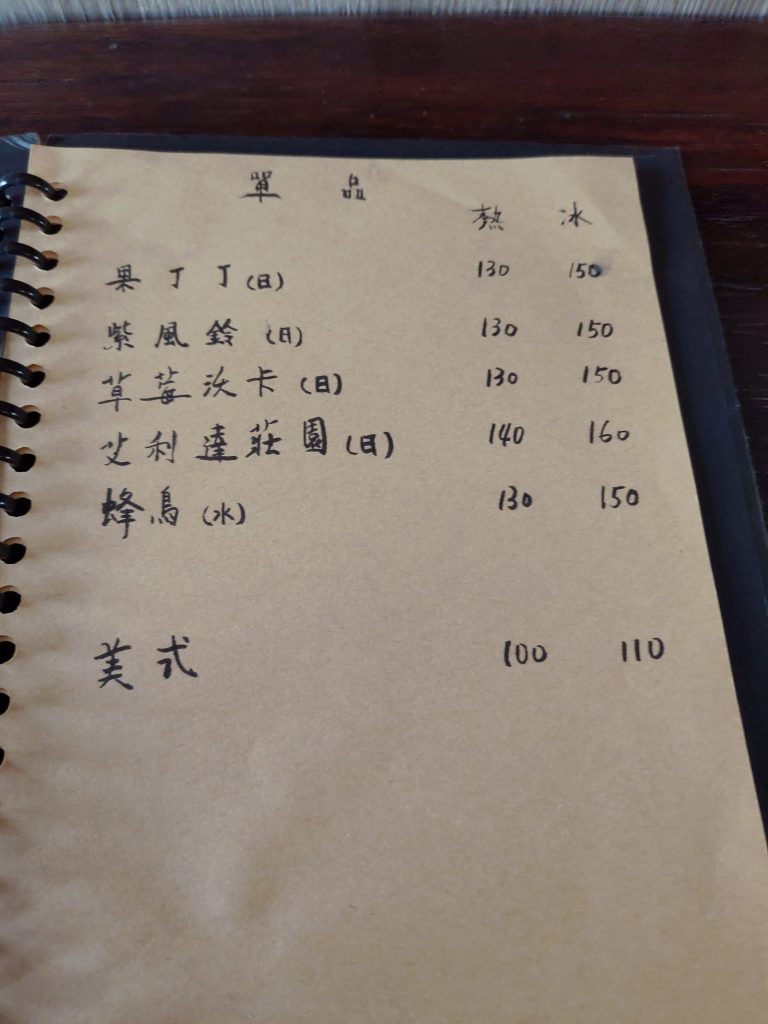 單品
熱 冰
果丁丁(日) 130 150
紫風鈴(日) 130 150
草莓沃卡(日) 130 150
艾利達莊園(日) 140 160
蜂鳥(水) 130 150
美式 100 110